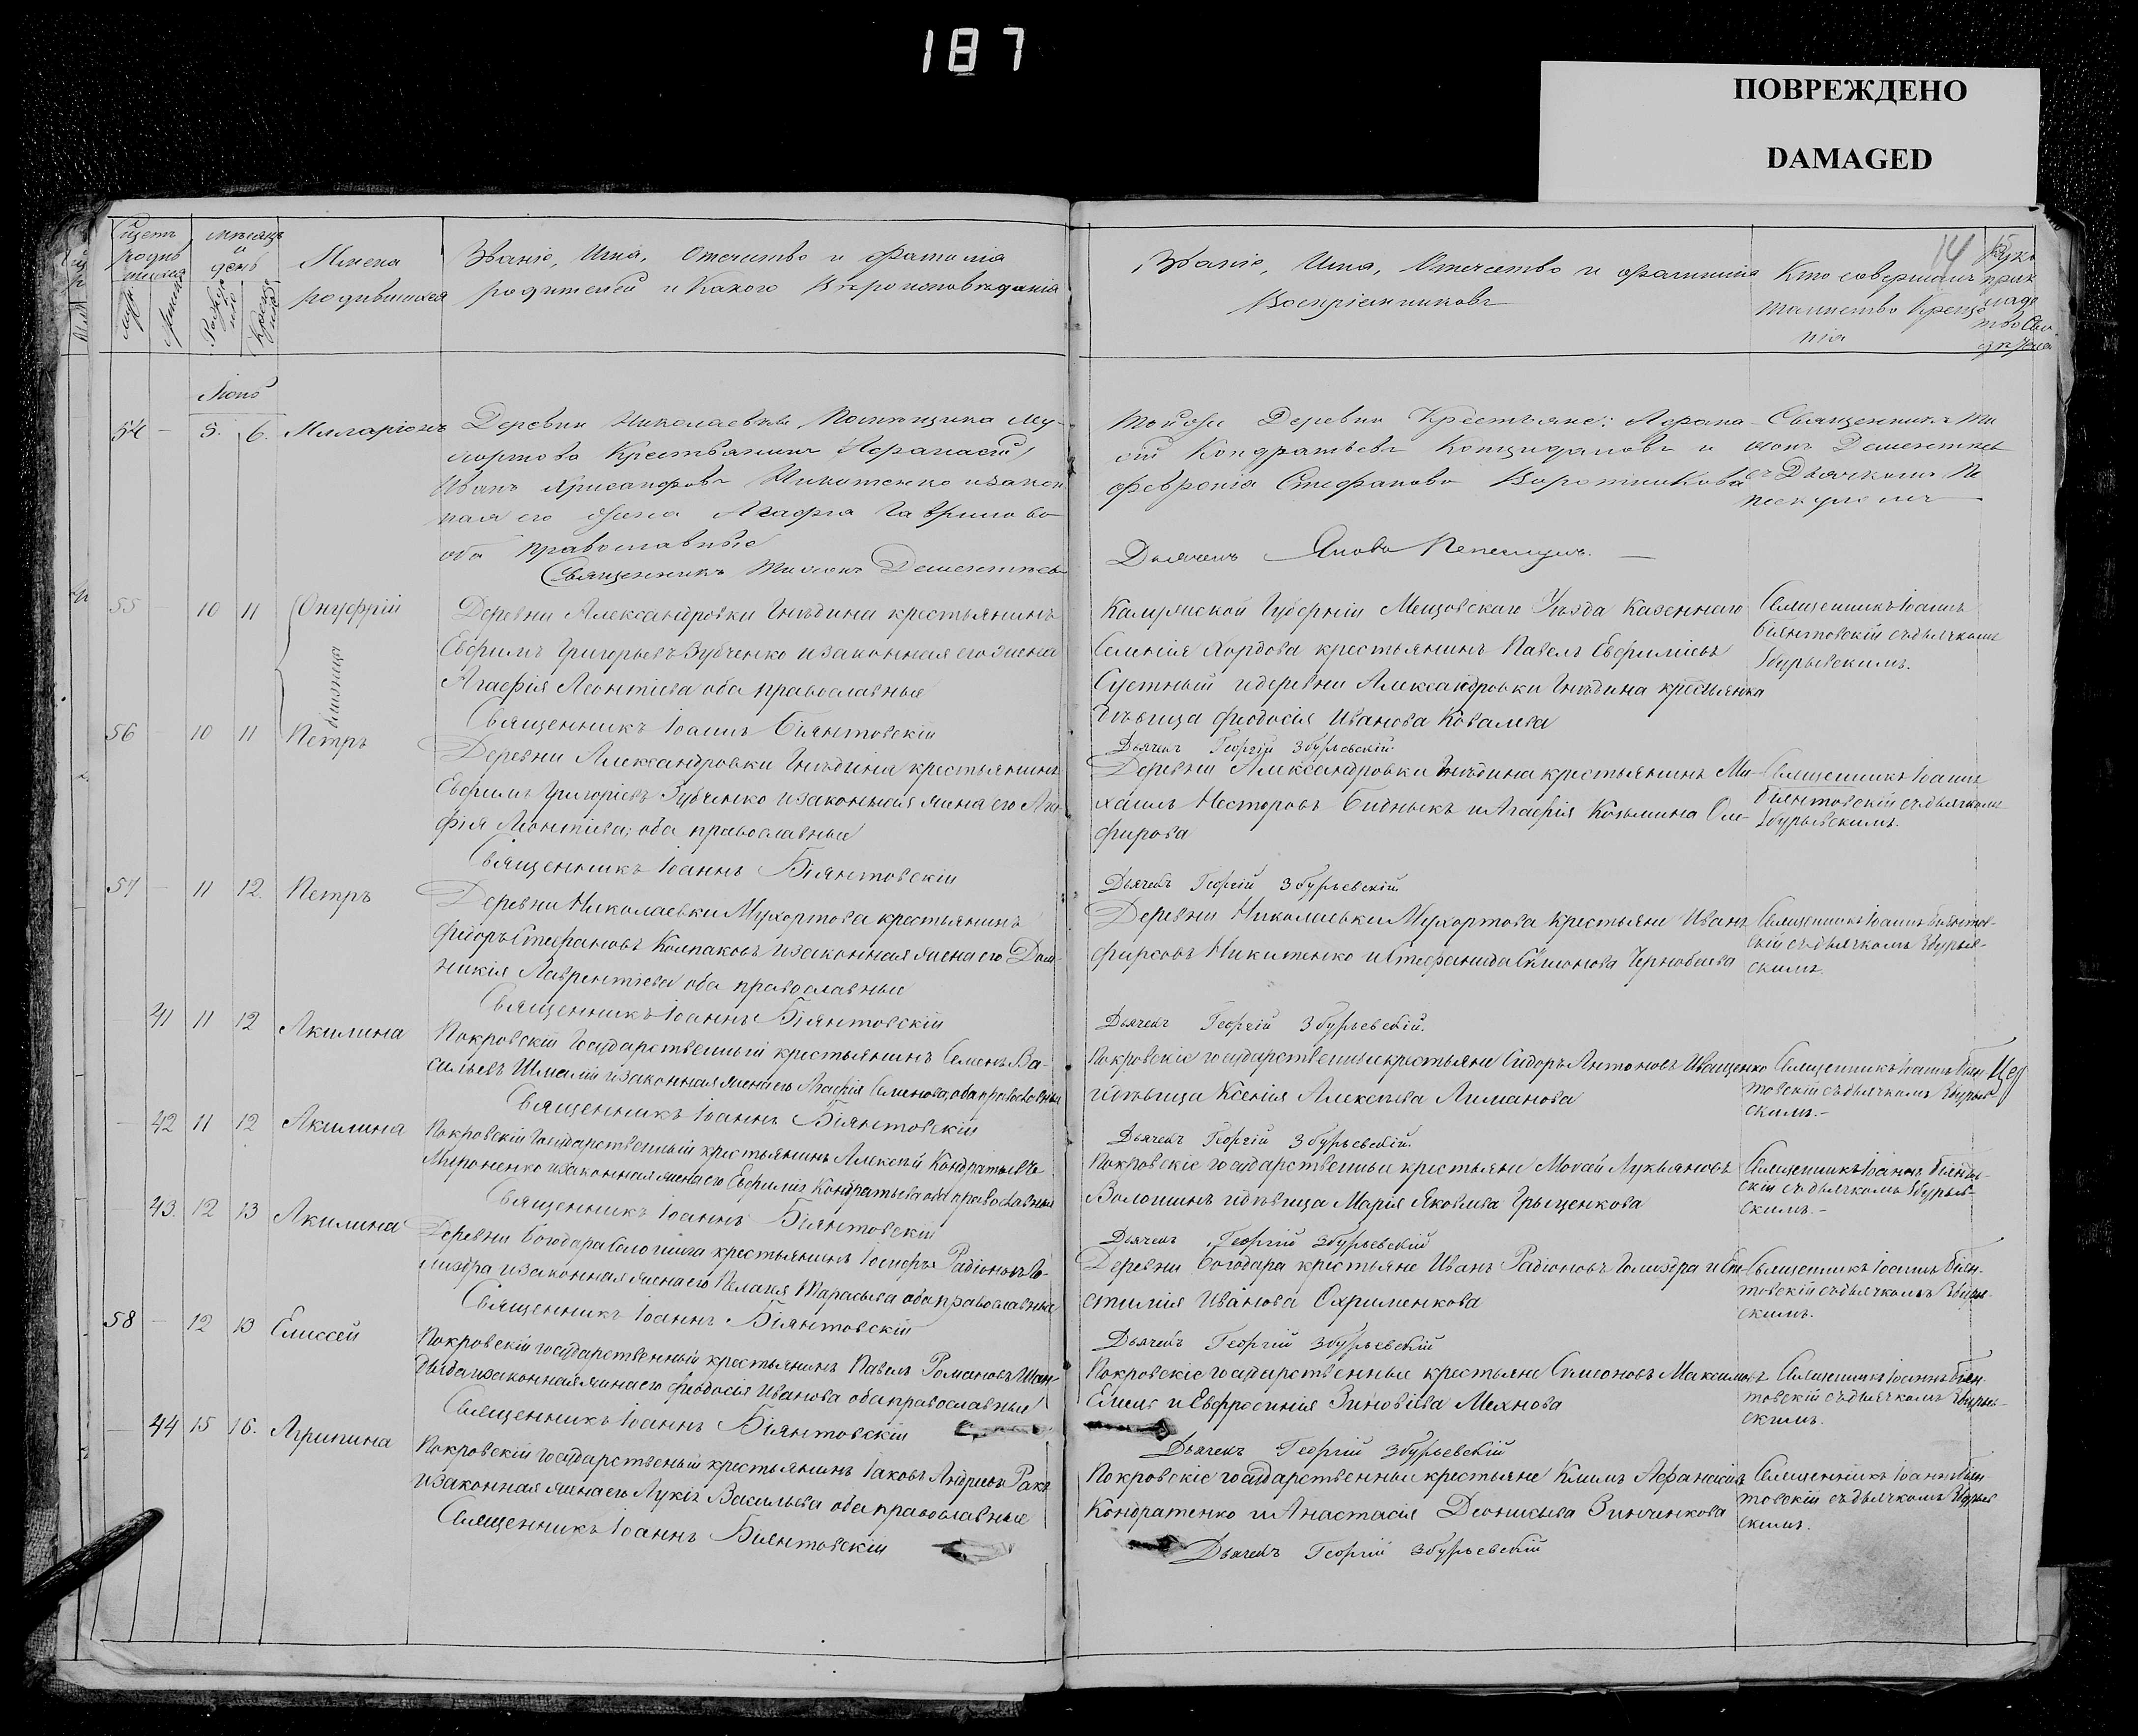 187
ПОВРЕЖДЕНО
DAMAGED
14
Щетъ родив шихся
муж.
женск.
мѣсяцъ и день
Рожде нія
Креще нія
Имена родившихся
Званіе, Имя, Отечество и Фамилія
родителей и Какого Вѣроисповѣданія
Званіе, Имя, Отечество и фамилія
Воспріемниковъ
Кто совершалъ
таинство Креще
нія
Іюнь
54 — 5. 6. Илларіонъ
Деревни Николаевки Помѣщика Му-
хортова Крестьянинъ
Иванъ Никитенко и закон
ная его жена Агафія Гаврилова
оба православные
Священникъ Дементьевъ
Тойже Деревни Крестьяне: Афана-
сій Кондратьевъ и
Февронія Стефанова Воротникова
Дьячекъ Яковъ
Священникъ Ти
монъ Дементьев
съ Дьячкомъ
55 — 10 11 Онуфрій
близнецы
Деревни Александровки Гнѣдина крестьянинъ
Евфимъ Григорьевъ Зубченко и законная его жена
Агафія Леонтіева оба православныя
Священникъ Іоаннъ Біянтовскій
Калужской Губерніи Мещовскаго Уѣзда Казеннаго
Селенія Хордова крестьянинъ Павелъ Евфиміевъ
Суетный и деревни Александровки Гнѣдина крестьянка
дѣвица Феодосія Иванова Ковалева
Дьячекъ Георгій Збурьевскій.
Священникъ Іоаннъ
Біянтовскій съ дьячкомъ
Збурьевскимъ.
56 10 11 Петръ
Деревни Александровки Гнѣдина крестьянинъ
Евфимъ Григоріевъ Зубченко и законная жена его Ага-
фія Леонтіева; оба православные
Священникъ Іоаннъ Біянтовскій
Деревни Александровки Гнѣдина крестьянинъ Ми-
хаилъ Несторовъ Бидныкъ и Агафія Козьмина Ол-
фирова
Дьячекъ Георгій Збурьевскій
Священникъ Іоаннъ
Біянтовскій съ дьячкомъ
Збурьевскимъ.
57 — 11 12. Петръ
Деревни Николаевки Мухортова крестьянинъ
Фидоръ Стефановъ Колпаковъ и законная жена его Дом-
никія Лаврентіева оба православные
Священникъ Іоаннъ Біянтовскій
Деревни Николаевки Мухортова крестьяне Иванъ
Фирсовъ Никитенко и Стефанида Симонова Чернобаева
Дьячекъ Георгій Збурьевскій.
Священникъ Іоаннъ Біянтов-
скій съ дьячкомъ Збурьев-
скимъ.
41 11 12 Акилина
Покровскій Государственный крестьянинъ Семенъ Ва-
сильевъ Шмалій и законная жена его Агафія Семенова, оба православны
Священникъ Іоаннъ Біянтовскій
Покровскіе государственные крестьяне Сидоръ Антоновъ Иващенко
и дѣвица Ксенія Алексѣева Лиманова
Дьячекъ Георгій Збурьевскій.
Священникъ Іоаннъ Біян
товскій съ дьячкомъ Збурьев
скимъ.-
— 42 11 12 Акилина
Покровскій Государственный крестьянинъ Алексѣй Кондратьевъ
Мироненко и законная жена его Евфимія Кондратьева оба православныя
Священникъ Іоаннъ Біянтовскій
Покровскіе государственные крестьяне Мосѣй Лукьяновъ
Волошинъ и дѣвица Марія Яковлева Грыценкова
Дьячекъ Георгій Збурьевскій
Священникъ Іоаннъ Біянтов-
скій съ дьячкомъ Збурьев-
скимъ.-
43. 12 13 Акилина
Деревни Богодара крестьянинъ Іосифъ Радіоновъ Го-
лиздра и законная жена его Пелагія Тарасьева оба православные
Священникъ Іоаннъ Біянтовскій
Деревни Богодара крестьяне Иванъ Радіоновъ Голиздра и
Иванова Охрименкова
Дьячекъ Георгій Збурьевскій
Священникъ Іоаннъ Біян-
товскій съ дьячкомъ Збурьев-
скимъ.
58 — 12 13 Елиссей
Покровскій государственный крестьянинъ Павелъ Романовъ Шан-
дыба и законная жена его Феодосія Иванова оба православные
Священникъ Іоаннъ Біянтовскій
Покровскіе государственные крестьяне Симеоновъ Максимовъ
и Евфросинія Зиновіева Мехнова
Дьячекъ Георгій Збурьевскій
Священникъ Іоаннъ Біян-
товскій съ дьячкомъ Збурьев-
скимъ.
— 44 15 16. Агрипина
Покровскій государственный крестьянинъ Іаковъ Андреевъ Ракъ
и законная жена его Лукія Васильева оба православные
Священникъ Іоаннъ Біянтовскій
Покровскіе государственные крестьяне Климъ Афанасіевъ
Кондратенко и Анастасія Діонисьева Зинченкова
Дьячекъ Георгій Збурьевскій
Священникъ Іоаннъ Біян-
товскій съ дьячкомъ Збурьев
скимъ.